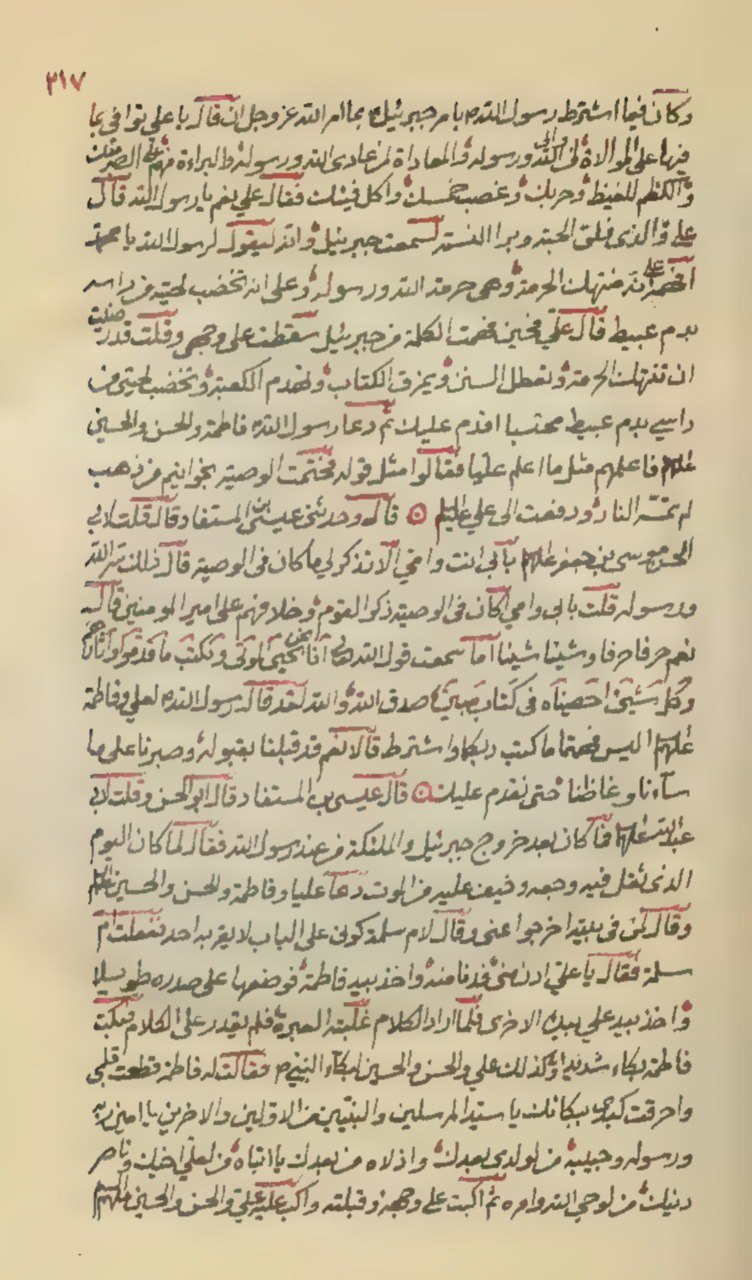 ٣١٧
وكان فيما اشترط رسول الله ص بامر جبرئيل ع بما امر الله عز وجل ان قال يا علي توافي بما
فيها على الموالاة لمن والى الله ورسوله والمعاداة لمن عادى الله ورسوله والبراءة منهم على الصبر منك
والكظم للغيظ وحربك وغصب خمسك واكل فيئك فقال علي نعم يا رسول الله قال
علي والذي فلق الحبة وبرا النسمة لسمعت جبرئيل والله ليقول لرسول الله يا محمد
افهمه انه منتهك الحرمة وهي حرمة الله ورسوله وعلى ان تخضب لحيته من راسه
بدم عبيط قال علي فحين فهمت الكلمة من جبرئيل سقطت على وجهي وقلت قد رضيت
ان تنتهك الحرمة وتعطل السنن ويمزق الكتاب وتهدم الكعبة وتخضب لحيتي من
راسي بدم عبيط محتسبا اقدم عليك ثم دعا رسول الله ص فاطمة والحسن والحسين
عليهم فاعلمهم مثل ما اعلم عليا فقالوا مثل قوله فختمت الوصية بخواتيم من ذهب
لم تمسه النار ودفعت الى علي عليه السلم ۞ قال وحدثني عيسى ابن المستفاد قال قلت لابي
الحسن موسى بن جعفر عليهما بابي انت وامي الا تذكر لي ما كان في الوصية قال ذلك سر الله
ورسوله قلت بابي وامي اكان في الوصية ذكر القوم وخلافهم على امير المومنين قال
نعم حرفا حرفا وشيئا شيئا اما سمعت قول الله تعالى انا نحن نحيي الموتى ونكتب ما قدموا واثارهم
وكل شيئ احصيناه في كتاب مبين صدق الله والله لقد قال رسول الله ص لعلي وفاطمة
عليهما اليس فهمتما ما كتب ربكما واشترط قالا نعم قد قبلنا بقبوله وصبرنا على ما
سآءنا وغاظنا حتى نقدم عليك ۞ قال عيسى بن المستفاد قال ابو الحسن وقلت لابي
عبد الله عليهما فما كان بعد خروج جبرئيل والملئكة من عند رسول الله فقال لما كان اليوم
الذي ثقل فيه وجعه وخيف عليه من الموت دعا عليا وفاطمة والحسن والحسين عليهم السلم
وقال لمن في بيته اخرجوا عني وقال لام سلمة كوني على الباب لا يقربه احد ففعلت ام
سلمة فقال يا علي ادن مني فدنا منه واخذ بيد فاطمة فوضعها على صدره طويلا
واخذ بيد علي بيده الاخرى فلما اراد الكلام غلبته العبرة فلم يقدر على الكلام فبكت
فاطمة بكاء شديدا وكذلك علي والحسن والحسين لبكآء النبي ص فقالت له فاطمة قطعت قلبي
واحرقت كبدي ببكائك يا سيد المرسلين والنبيين من الاولين والاخرين يا امين ربه
ورسوله وحبيبه من لولدي بعدك واذلاه من بعدك يا ابتاه من لعلي اخيك وناصر
دينك من لوحي الله وامره ثم اكبت على وجهه وقبلته واكب عليه علي والحسن والحسين عليهم